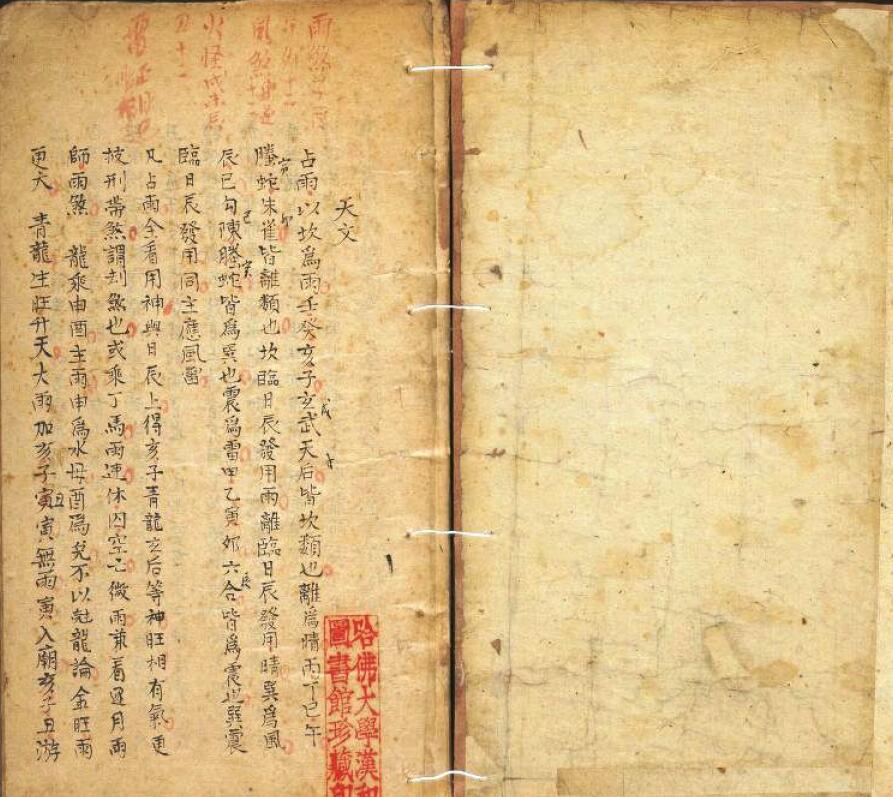 天文
占雨以坎爲雨壬癸亥子玄武天后皆坎類也離爲晴丙丁巳午
螣蛇朱雀皆離類也坎臨日辰發用雨離臨日辰發用晴巽爲風
辰巳勾陳螣蛇皆爲巽也震爲雷甲乙寅卯六合皆爲震也巽震
臨日辰發用同主應風雷
凡占雨全看用神與日辰上得亥子青龍玄后等神旺相有氣更
披刑帶煞謂刦煞也或乘丁馬雨連休囚空亡微雨兼看逐月雨
師雨煞 龍乘申酉主雨申爲水母酉爲兌不以尅龍論金旺雨
更大 青龍生旺升天大雨加亥子丑寅無雨寅入廟亥子丑游
雨煞子辰
風煞
火怪戌未辰
丑十二
哈佛大學漢和
圖書館珍藏印